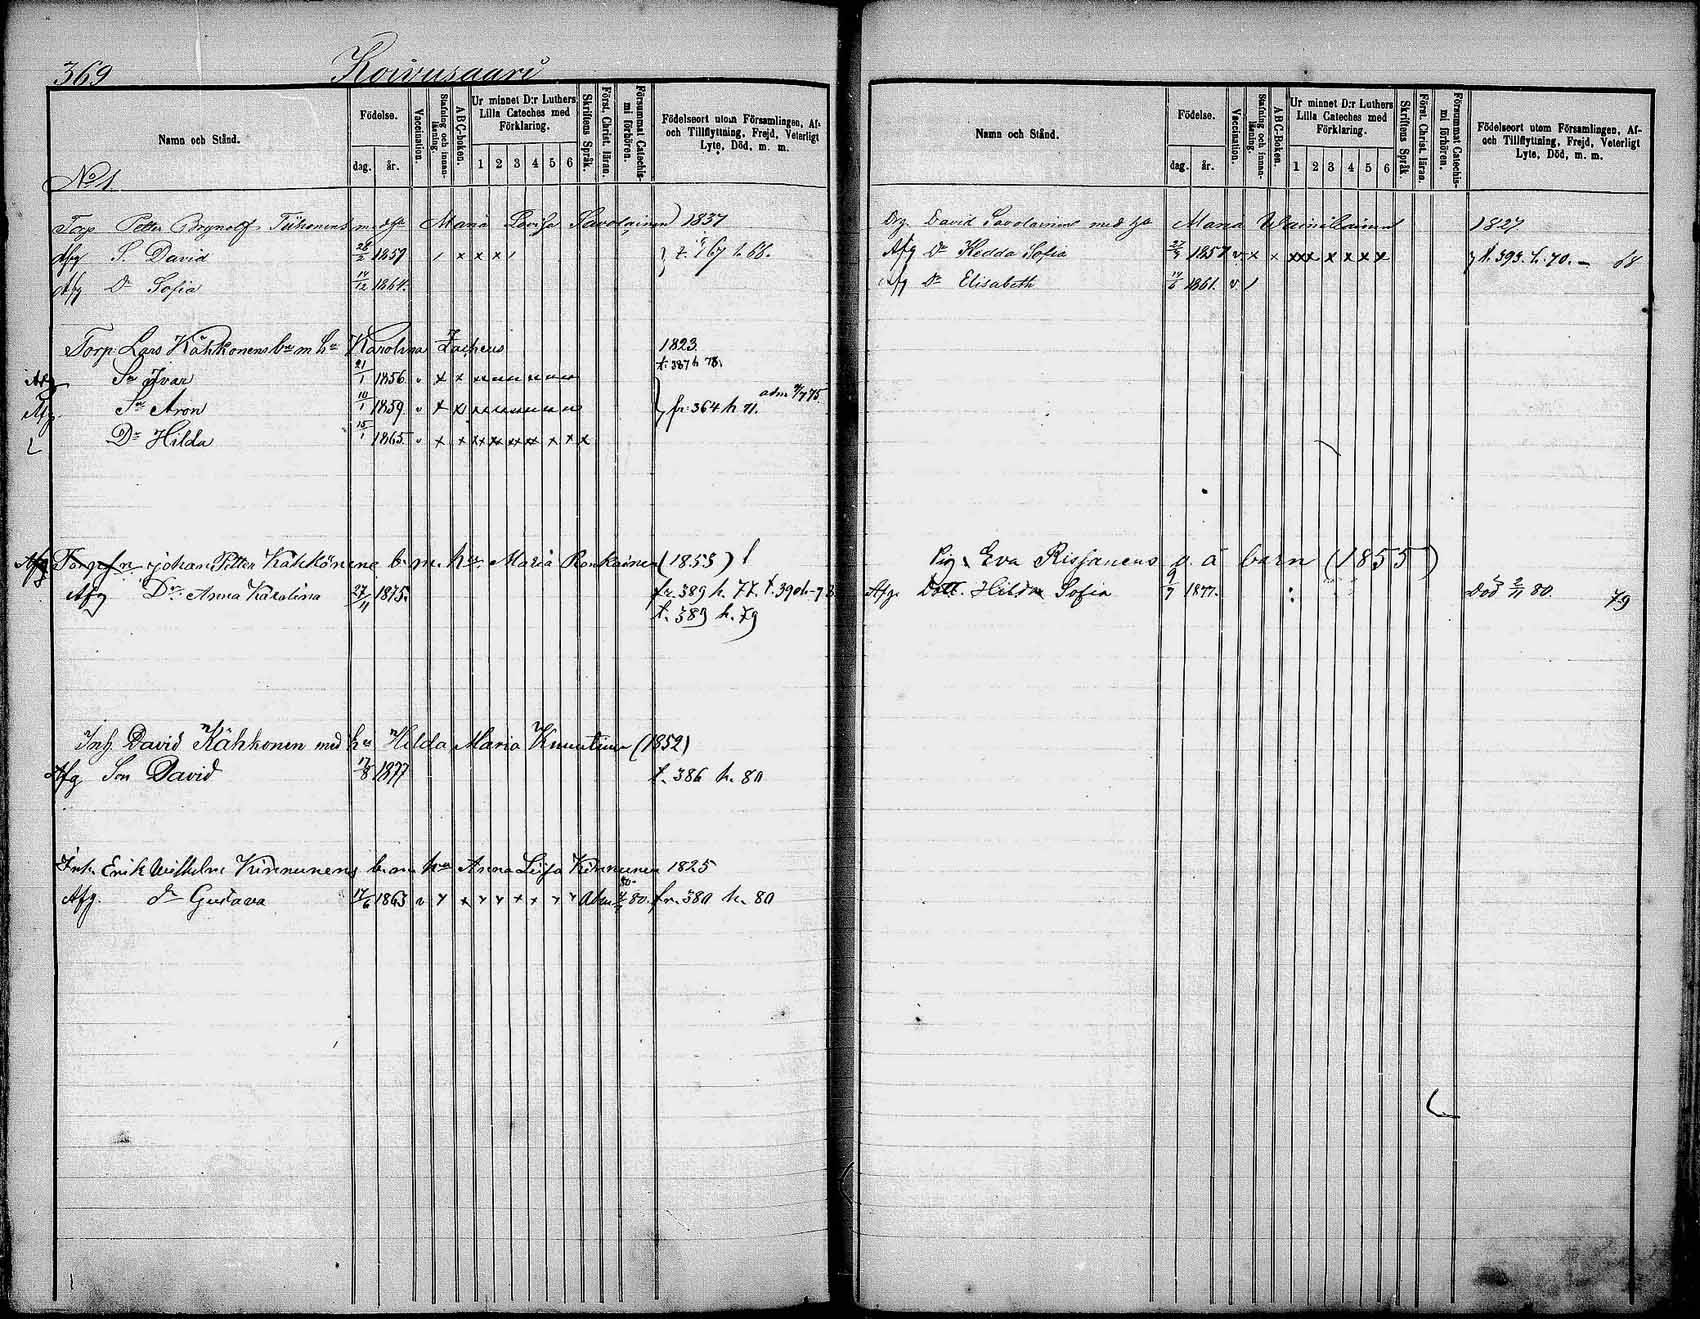 369 Koivusaari
Namn och Stånd.
Födelse.
dag. år.
Vaccination.
Stafning och innanläsning.
A B C-boken.
Ur minnet D:r Luthers Lilla Cateches med Förklaring.
1 2 3 4 5 6
Skriftens Språk.
Först. Christ. läran.
Försummat Catechismi förhören.
Födelseort utom Församlingen, Af- och Tillflyttning, Frejd, Veterligt Lyte, Död, m. m.
No 1.
Torp Petter Brynolf Tiihonens med h Maria Lovisa Savolainen 1837
Afg S. David 1857 t. 767 h 66.
Afg Dr Sofia 14/12 1864.
Torp. Lars Kähkonens bn m hu Karolina Zacheus 1823.
t. 387 h 78.
Afg Sn Ivar 21/1 1856.
Afg. Sn Aron 10/1 1859. fr. 364 h 71.
Dr Hilda 15/1 1865.
Afg Johan Petter Kähkönens b. m. hu Maria Ronkainen (1853)
Afg Dr Anna Karolina 27/11 1875. fr. 389 h. 77. t. 390 h 7
t. 383 h. 79
Inh. David Kähkonen med hu Hilda Maria Knuutinen (1852)
Afg Son David 17/8 1877 t. 386 h. 80
Inh. Erik Wilhelm Kinnunens b. m hu Anna Liisa Kinnunen 1825
Afg. dr Gustava 17/6 1863 Adm. 80. fr. 380 h. 80
Namn och Stånd.
Födelse.
dag. år.
Vaccination.
Stafning och innanläsning.
A B C-Boken.
Ur minnet D:r Luthers Lilla Cateches med Förklaring.
1 2 3 4 5 6
Skriftens Språk
Först. Christ. läran.
Försummat Catechismi förhören.
Födelseort utom Församlingen, Af- och Tillflyttning, Frejd, Veterligt Lyte, Död, m. m.
David Savolainens med h Maria Wäinikainen 1827
Afg Dr Hedda Sofia 1857 t. 393. h. 70. 68
Afg Dr Elisabeth 1861.
Pig. Eva Risſanens o. ä barn (1855)
Afg. Dott. Hilda Sofia 9/7 1877. Död 2/11 80. 79